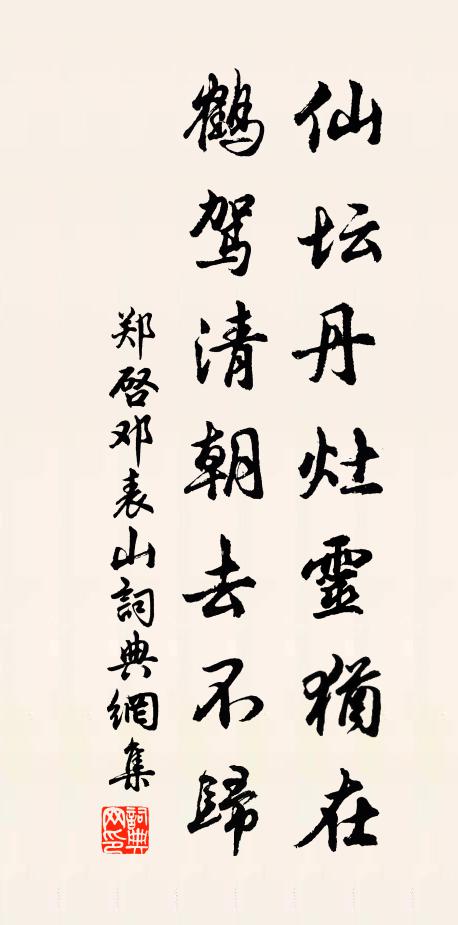 仙坛丹灶靈猶在
鹤驾清朝去不歸
郑启邓表山詞典網集
詞典网印